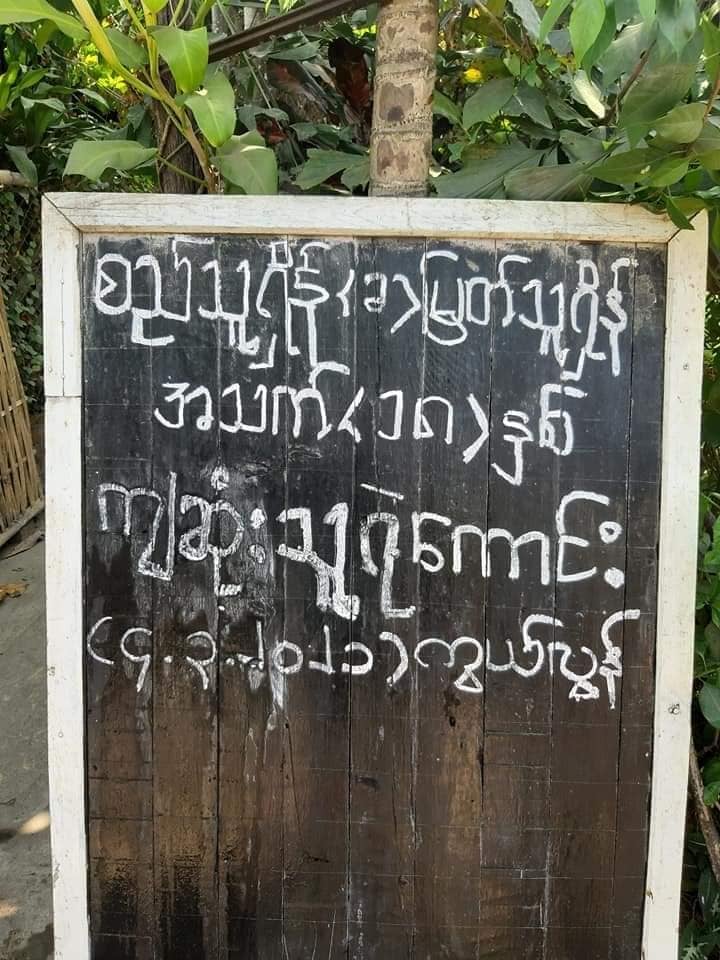 စည်သူရှိန်(ခ)မြတ်သူရှိန်
အသက်(၁၈)နှစ်
ကျဆုံးသူရဲကောင်း
(၄.၃.၂၀၂၁)ကွယ်လွန်